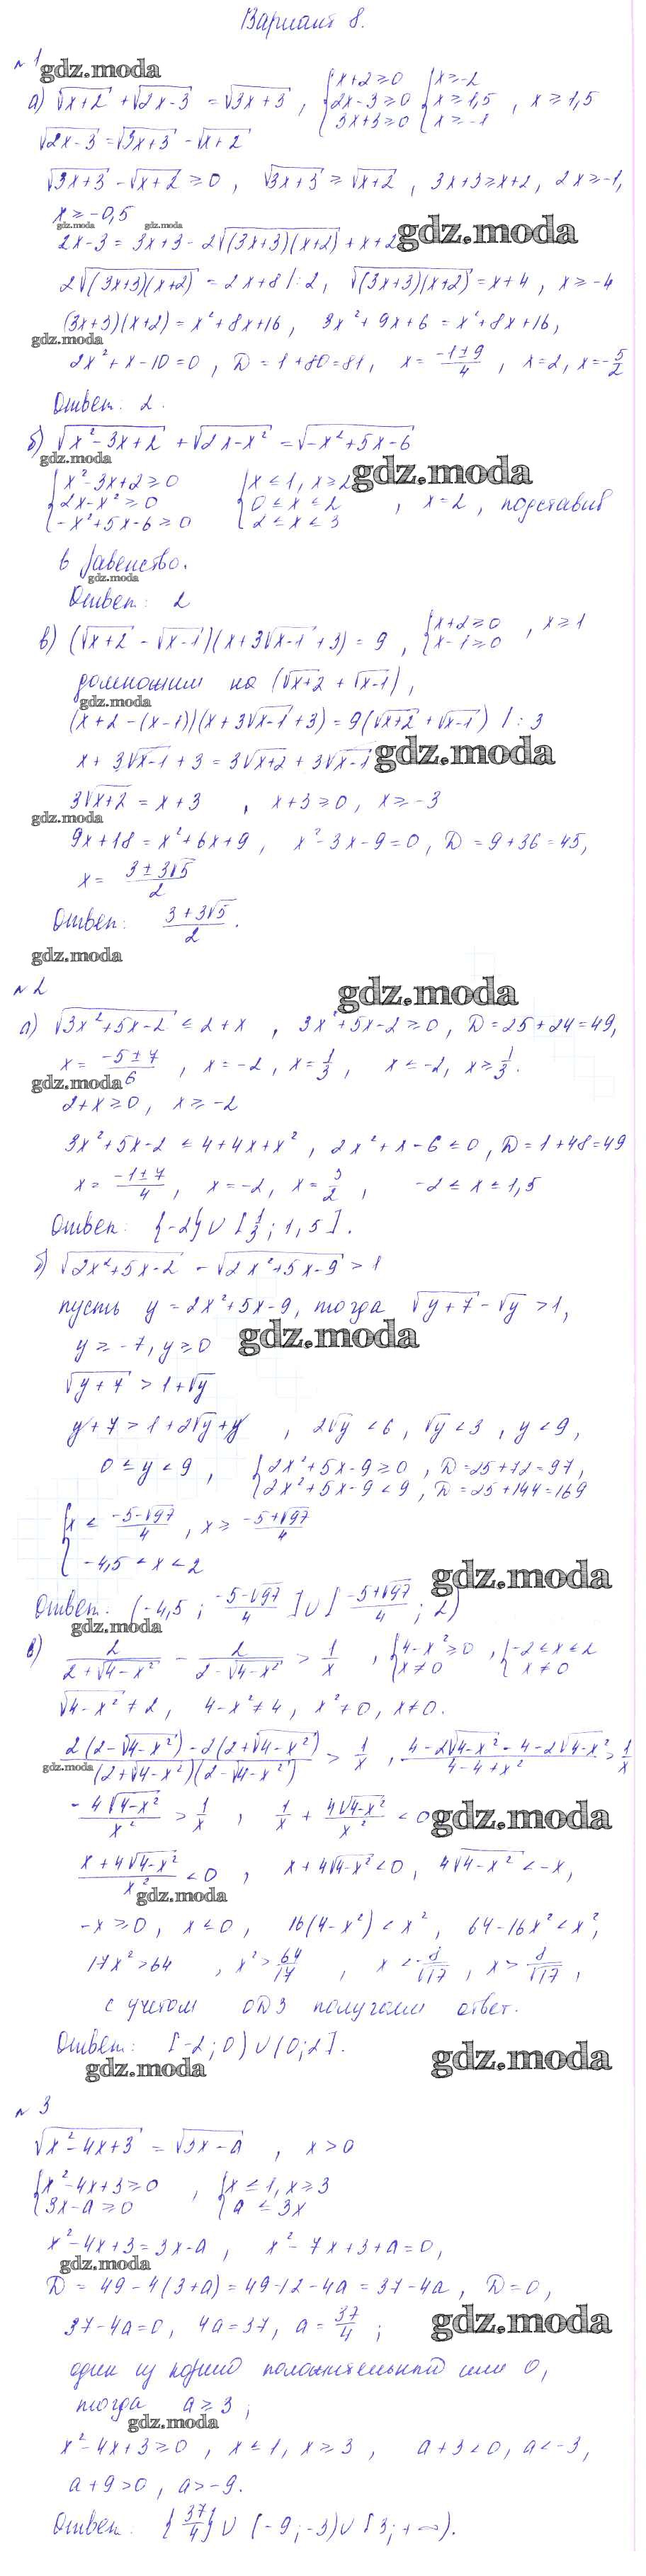 Вариант 8.
№ 1
gdz.moda
а) √(x+2) + √(2x-3) = √(3x+3) , {x+2≥0 2x-3≥0 3x+3≥0 {x≥-2 x≥1,5 x≥-1 , x≥1,5
√(2x-3) = √(3x+3) - √(x+2)
√(3x+3) - √(x+2) ≥ 0 , √(3x+3) ≥ √(x+2) , 3x+3≥x+2, 2x≥-1,
x≥-0,5
gdz.moda gdz.moda
2x-3 = 3x+3 - 2√((3x+3)(x+2)) + x+2 gdz.moda
2√((3x+3)(x+2)) = 2x+8 |:2, √((3x+3)(x+2)) = x+4 , x≥-4
(3x+3)(x+2) = x²+8x+16, 3x²+9x+6 = x²+8x+16,
gdz.moda
2x²+x-10=0 , D=1+80=81, x= (-1±9)/4 , x=2, x=-5/2
Ответ: 2.
б) √(x²-3x+2) + √(2x-x²) = √(-x²+5x-6)
gdz.moda
{x²-3x+2≥0 2x-x²≥0 -x²+5x-6≥0 {x≤1, x≥2 0≤x≤2 2≤x≤3 , x=2, подставив
gdz.moda
в равенство.
gdz.moda
Ответ: 2
в) (√(x+2) - √(x-1))(x+3√(x-1)+3) = 9 , {x+2≥0 x-1≥0 , x≥1
домножим на (√(x+2) + √(x-1)) ,
gdz.moda
(x+2-(x-1))(x+3√(x-1)+3) = 9(√(x+2)+√(x-1)) |:3
x+3√(x-1)+3 = 3√(x+2) + 3√(x-1) gdz.moda
3√(x+2) = x+3 , x+3≥0, x≥-3
gdz.moda
9x+18 = x²+6x+9 , x²-3x-9=0, D=9+36=45,
x= (3±3√5)/2
Ответ: (3+3√5)/2 .
gdz.moda
№ 2
gdz.moda
а) √(3x²+5x-2) ≤ 2+x , 3x²+5x-2≥0, D=25+24=49,
x= (-5±7)/6 , x=-2, x=1/3 , x≤-2, x≥1/3.
gdz.moda
2+x≥0, x≥-2
3x²+5x-2 ≤ 4+4x+x² , 2x²+x-6≤0, D=1+48=49
x= (-1±7)/4 , x=-2, x=3/2 , -2≤x≤1,5
Ответ: {-2}∪[1/3; 1,5].
б) √(2x²+5x-2) - √(2x²+5x-9) > 1
пусть y=2x²+5x-9, тогда √(y+7) - √y > 1,
y≥-7, y≥0 gdz.moda
√(y+7) > 1+√y
y+7 > 1+2√y+y , 2√y<6, √y<3, y<9,
0≤y<9 , {2x²+5x-9≥0 , D=25+72=97, 2x²+5x-9<9 , D=25+144=169
{x≤ (-5-√97)/4 , x≥ (-5+√97)/4
-4,5<x<2
gdz.moda
Ответ: (-4,5; (-5-√97)/4]∪[(-5+√97)/4; 2)
gdz.moda
в) 2/(2+√(4-x²)) - 2/(2-√(4-x²)) > 1/x , {4-x²≥0 x≠0 , {-2≤x≤2 x≠0
√(4-x²)≠2, 4-x²≠4, x²≠0, x≠0.
(2(2-√(4-x²))-2(2+√(4-x²)))/((2+√(4-x²))(2-√(4-x²))) > 1/x , (4-2√(4-x²)-4-2√(4-x²))/(4-4+x²) > 1/x
gdz.moda
-4√(4-x²)/x² > 1/x , 1/x + 4√(4-x²)/x² < 0 gdz.moda
(x+4√(4-x²))/x² < 0 , x+4√(4-x²)<0, 4√(4-x²) < -x,
gdz.moda
-x≥0, x≤0, 16(4-x²)<x², 64-16x²<x²,
17x²>64 , x²>64/17 , x<-8/√17 , x>8/√17 ,
с учетом ОДЗ получаем ответ.
Ответ: [-2;0)∪(0;2].
gdz.moda gdz.moda
№ 3
√(x²-4x+3) = √(3x-a) , x>0
{x²-4x+3≥0 3x-a≥0 , {x≤1, x≥3 a≤3x
x²-4x+3=3x-a , x²-7x+3+a=0,
gdz.moda
D = 49-4(3+a) = 49-12-4a = 37-4a , D=0,
37-4a=0, 4a=37, a=37/4 ; gdz.moda
один из корней положительный или 0,
тогда a≥3 ;
gdz.moda
x²-4x+3≥0 , x≤1, x≥3 , a+3<0, a<-3,
a+9>0 , a>-9.
Ответ: {37/4}∪(-9;-3)∪[3;+∞).